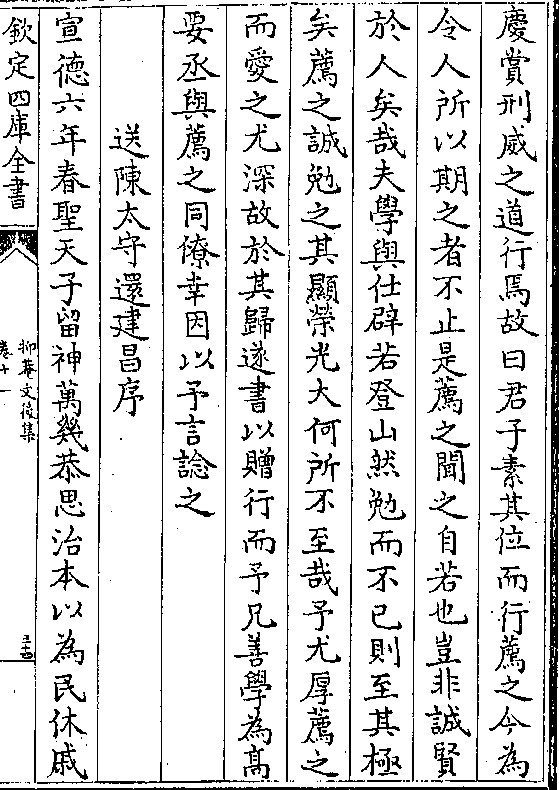 慶賞刑威之道行焉故曰君子素其位而行薦之今為
令人所以期之者不止是薦之聞之自若也豈非誠賢
於人矣哉夫學與仕辟若登山然勉而不已則至其極
矣薦之誠勉之其顯榮光大何所不至哉予尤厚薦之
而愛之尤深故於其歸遂書以贈行而予兄善學為髙
要丞與薦之同僚幸因以予言諗之
送陳太守還建昌序
宣德六年春聖天子留神萬幾恭思治本以為民休戚
欽定四庫全書
抑菴文後集
卷十一
三十四